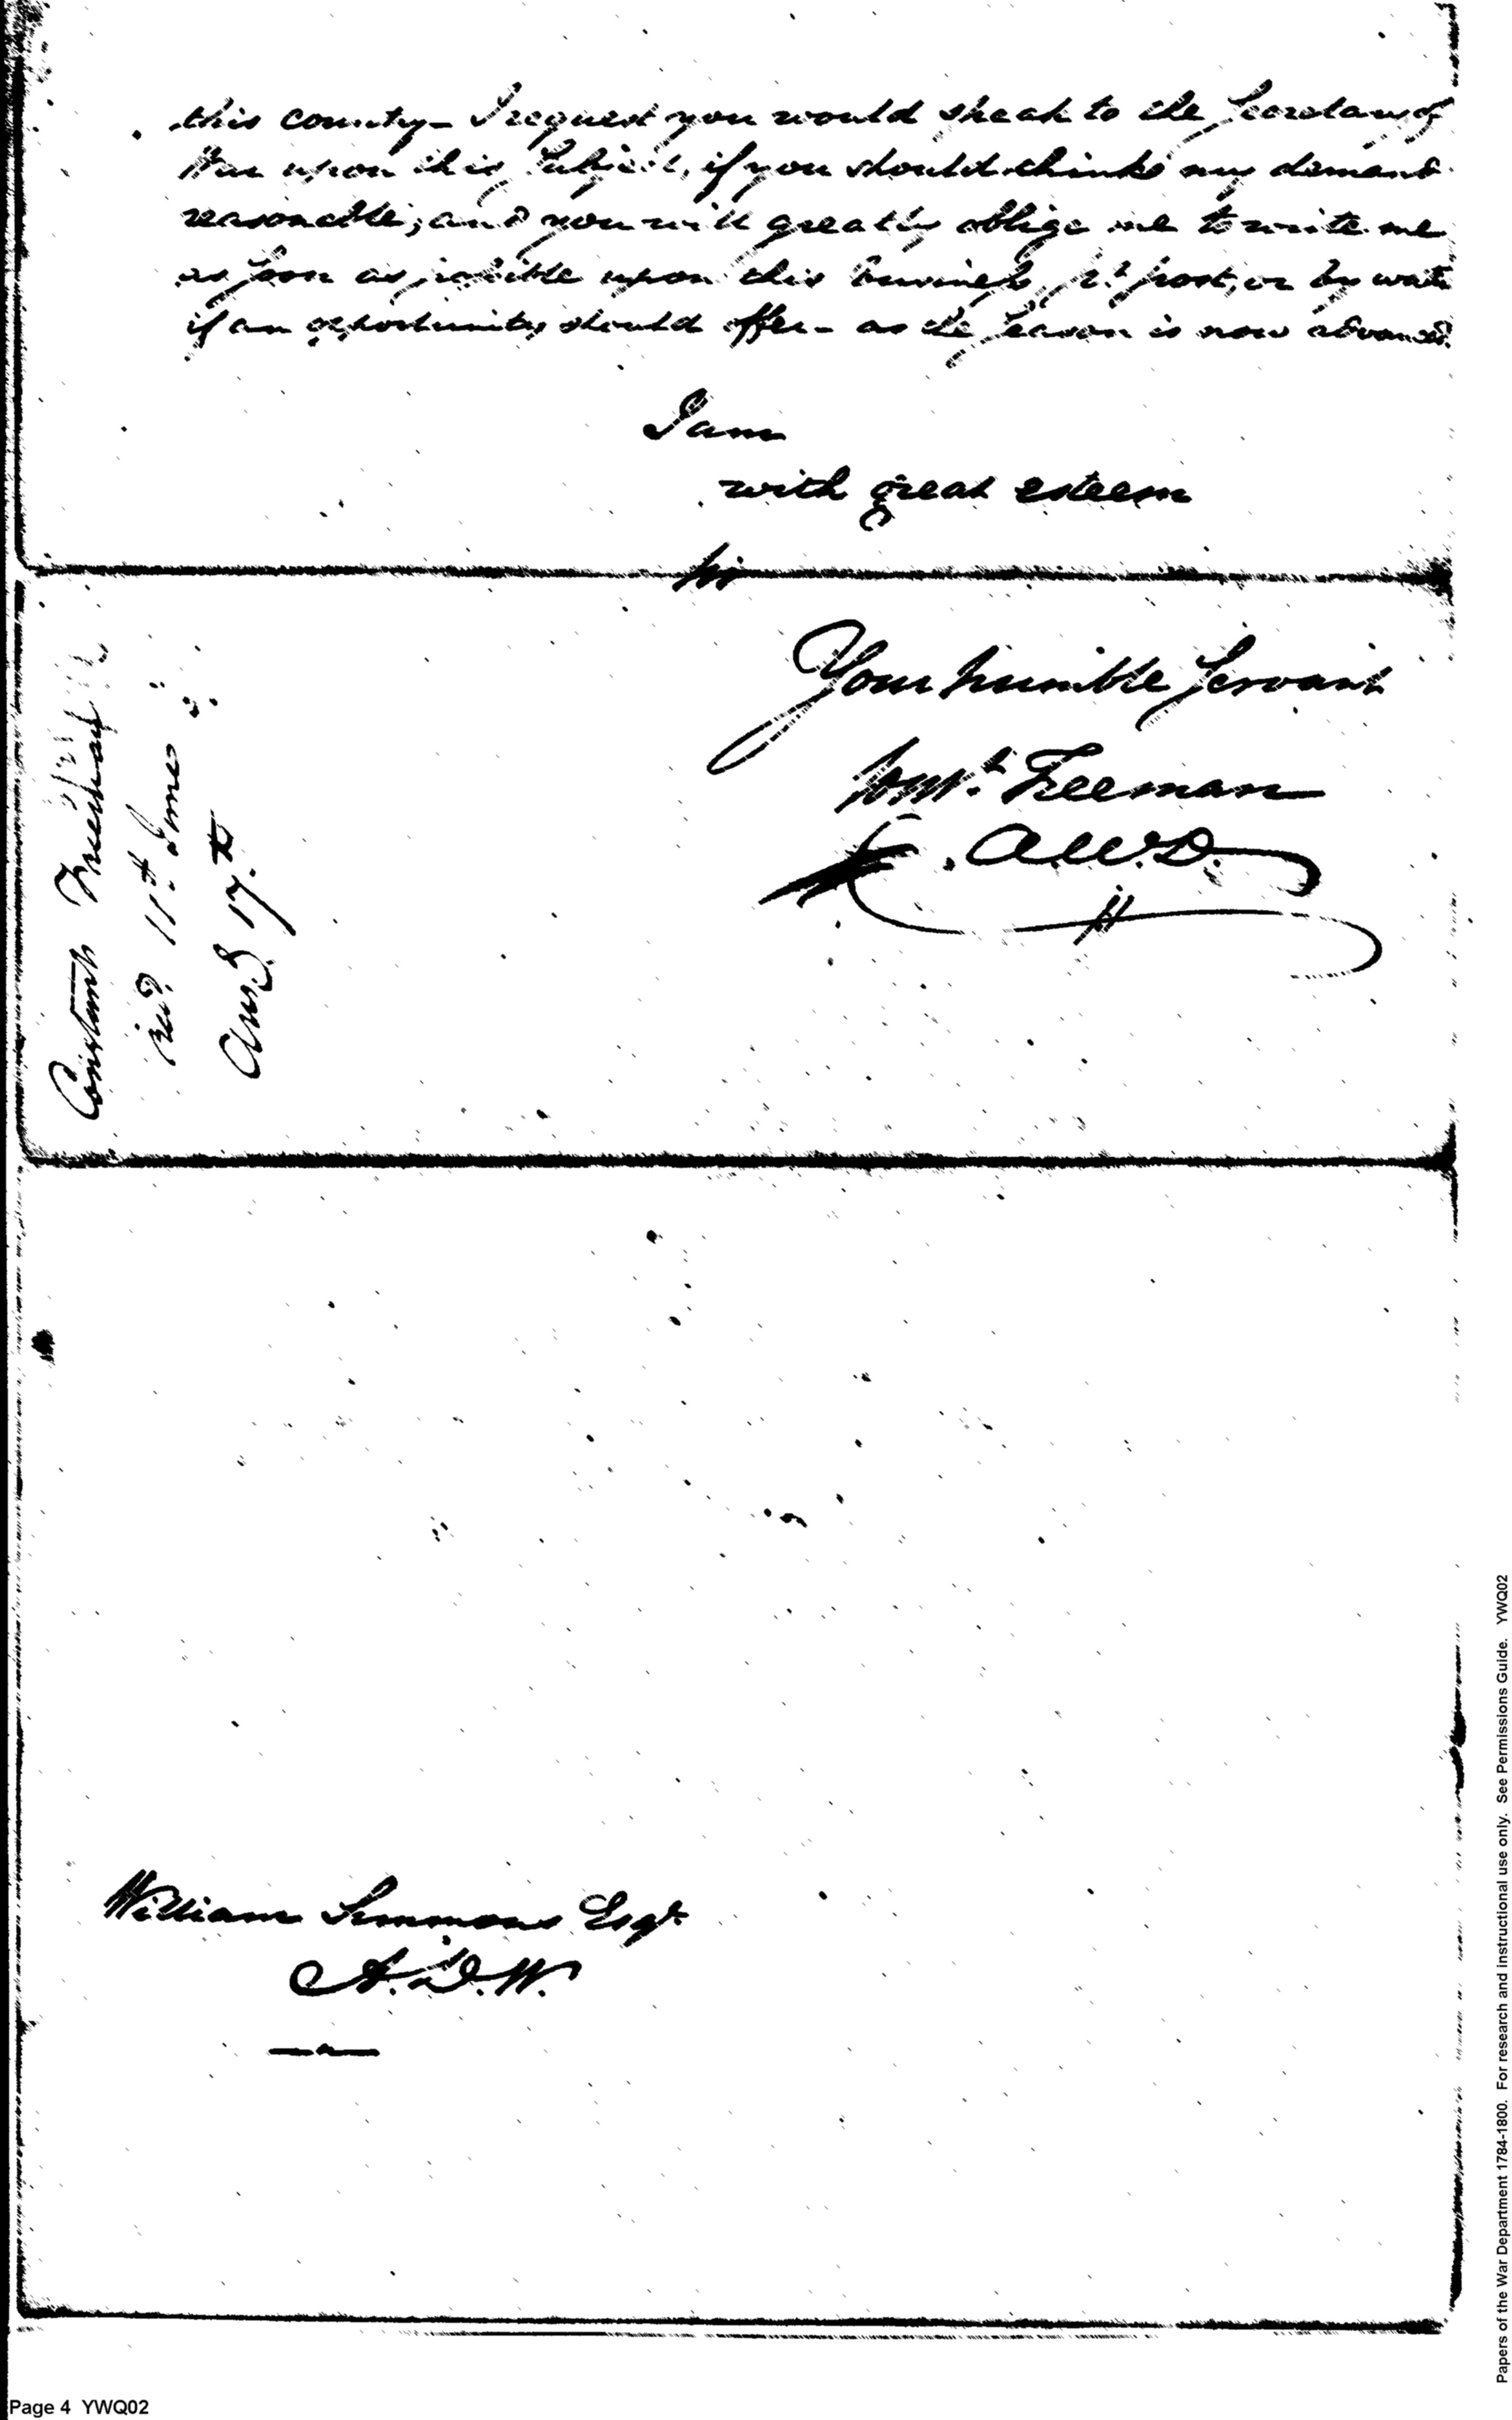 this county - I request you would speak to the Secretary of
War upon this Subject, if you should think my demand
reasonable; and you will greatly oblige me to write me
as soon as possible upon this business, pr post, or by water
if an opportunity should offer - as the Season is now advanced.
I am
with great esteem
Sir
Your humble Servant
Const Freeman
A.W.D.
Constant Freeman
recd. 11th June
Ansd. 17th
William Simmons Esqr.
A.D.W.
Page 4 YWQ02
Papers of the War Department 1784-1800. For research and instructional use only. See Permissions Guide. YWQ02